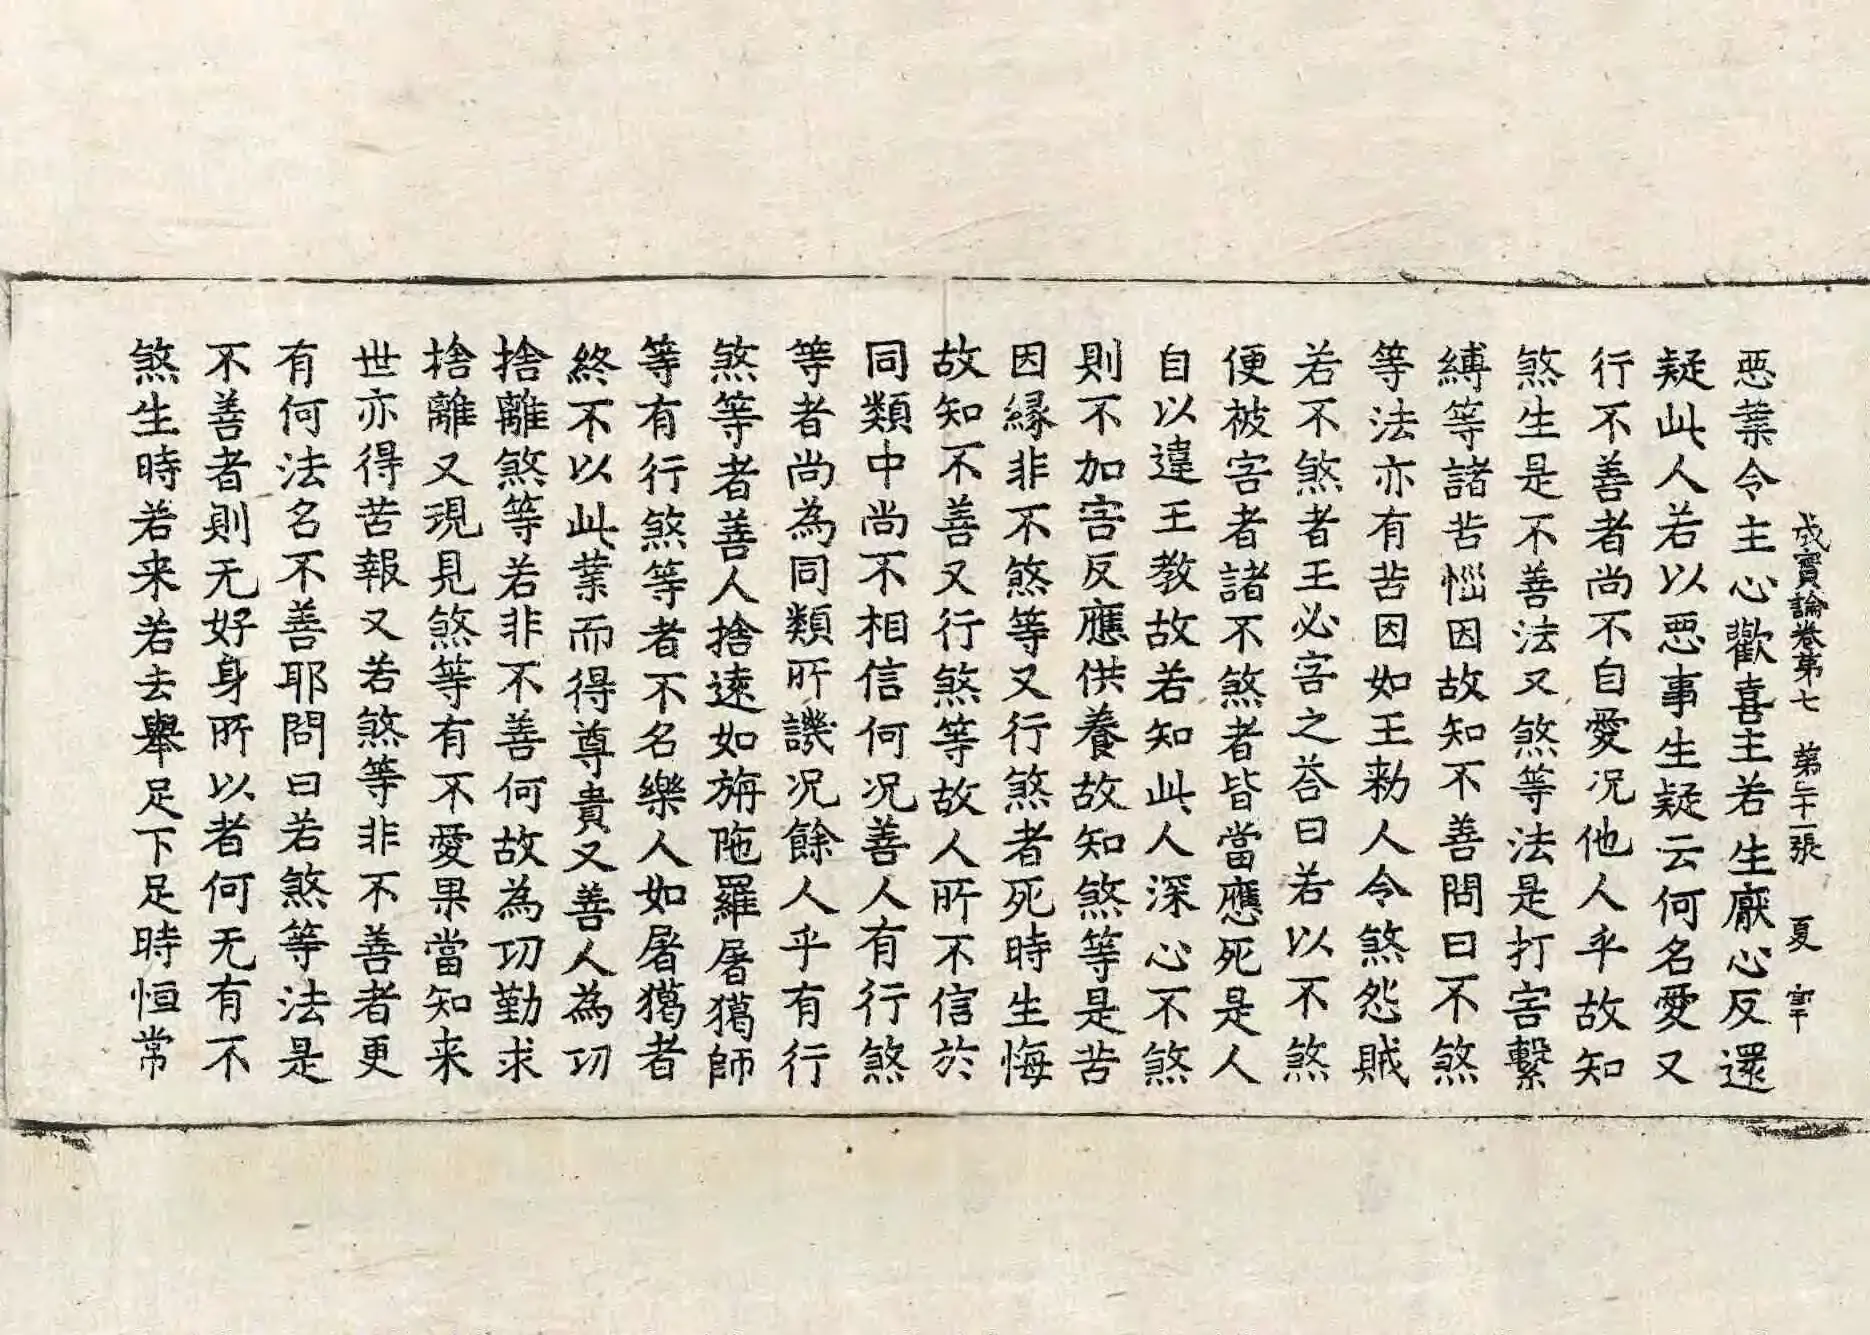 成實論卷第七 第二十一張 夏
惡業令主心歡喜主若生厭心反還
疑此人若以惡事生疑云何名愛又
行不善者尚不自愛况他人乎故知
煞生是不善法又煞等法是打害繫
縛等諸苦惱因故知不善問曰不煞
等法亦有苦因如王勑人令煞怨賊
若不煞者王必害之荅曰若以不煞
便被害者諸不煞者皆當應死是人
自以違王教故若知此人深心不煞
則不加害反應供養故知煞等是苦
因緣非不煞等又行煞者死時生悔
故知不善又行煞等故人所不信於
同類中尚不相信何况善人有行煞
等者尚為同類所譏况餘人乎有行
煞等者善人捨遠如旃陁羅屠獦師
等有行煞等者不名樂人如屠獦者
終不以此業而得尊貴又善人為功
捨離煞等若非不善何故為功勤求
捨離又現見煞等有不愛果當知来
世亦得苦報又若煞等非不善者更
有何法名不善耶問曰若煞等法是
不善者則无好身所以者何无有不
煞生時若来若去舉足下足時恒常